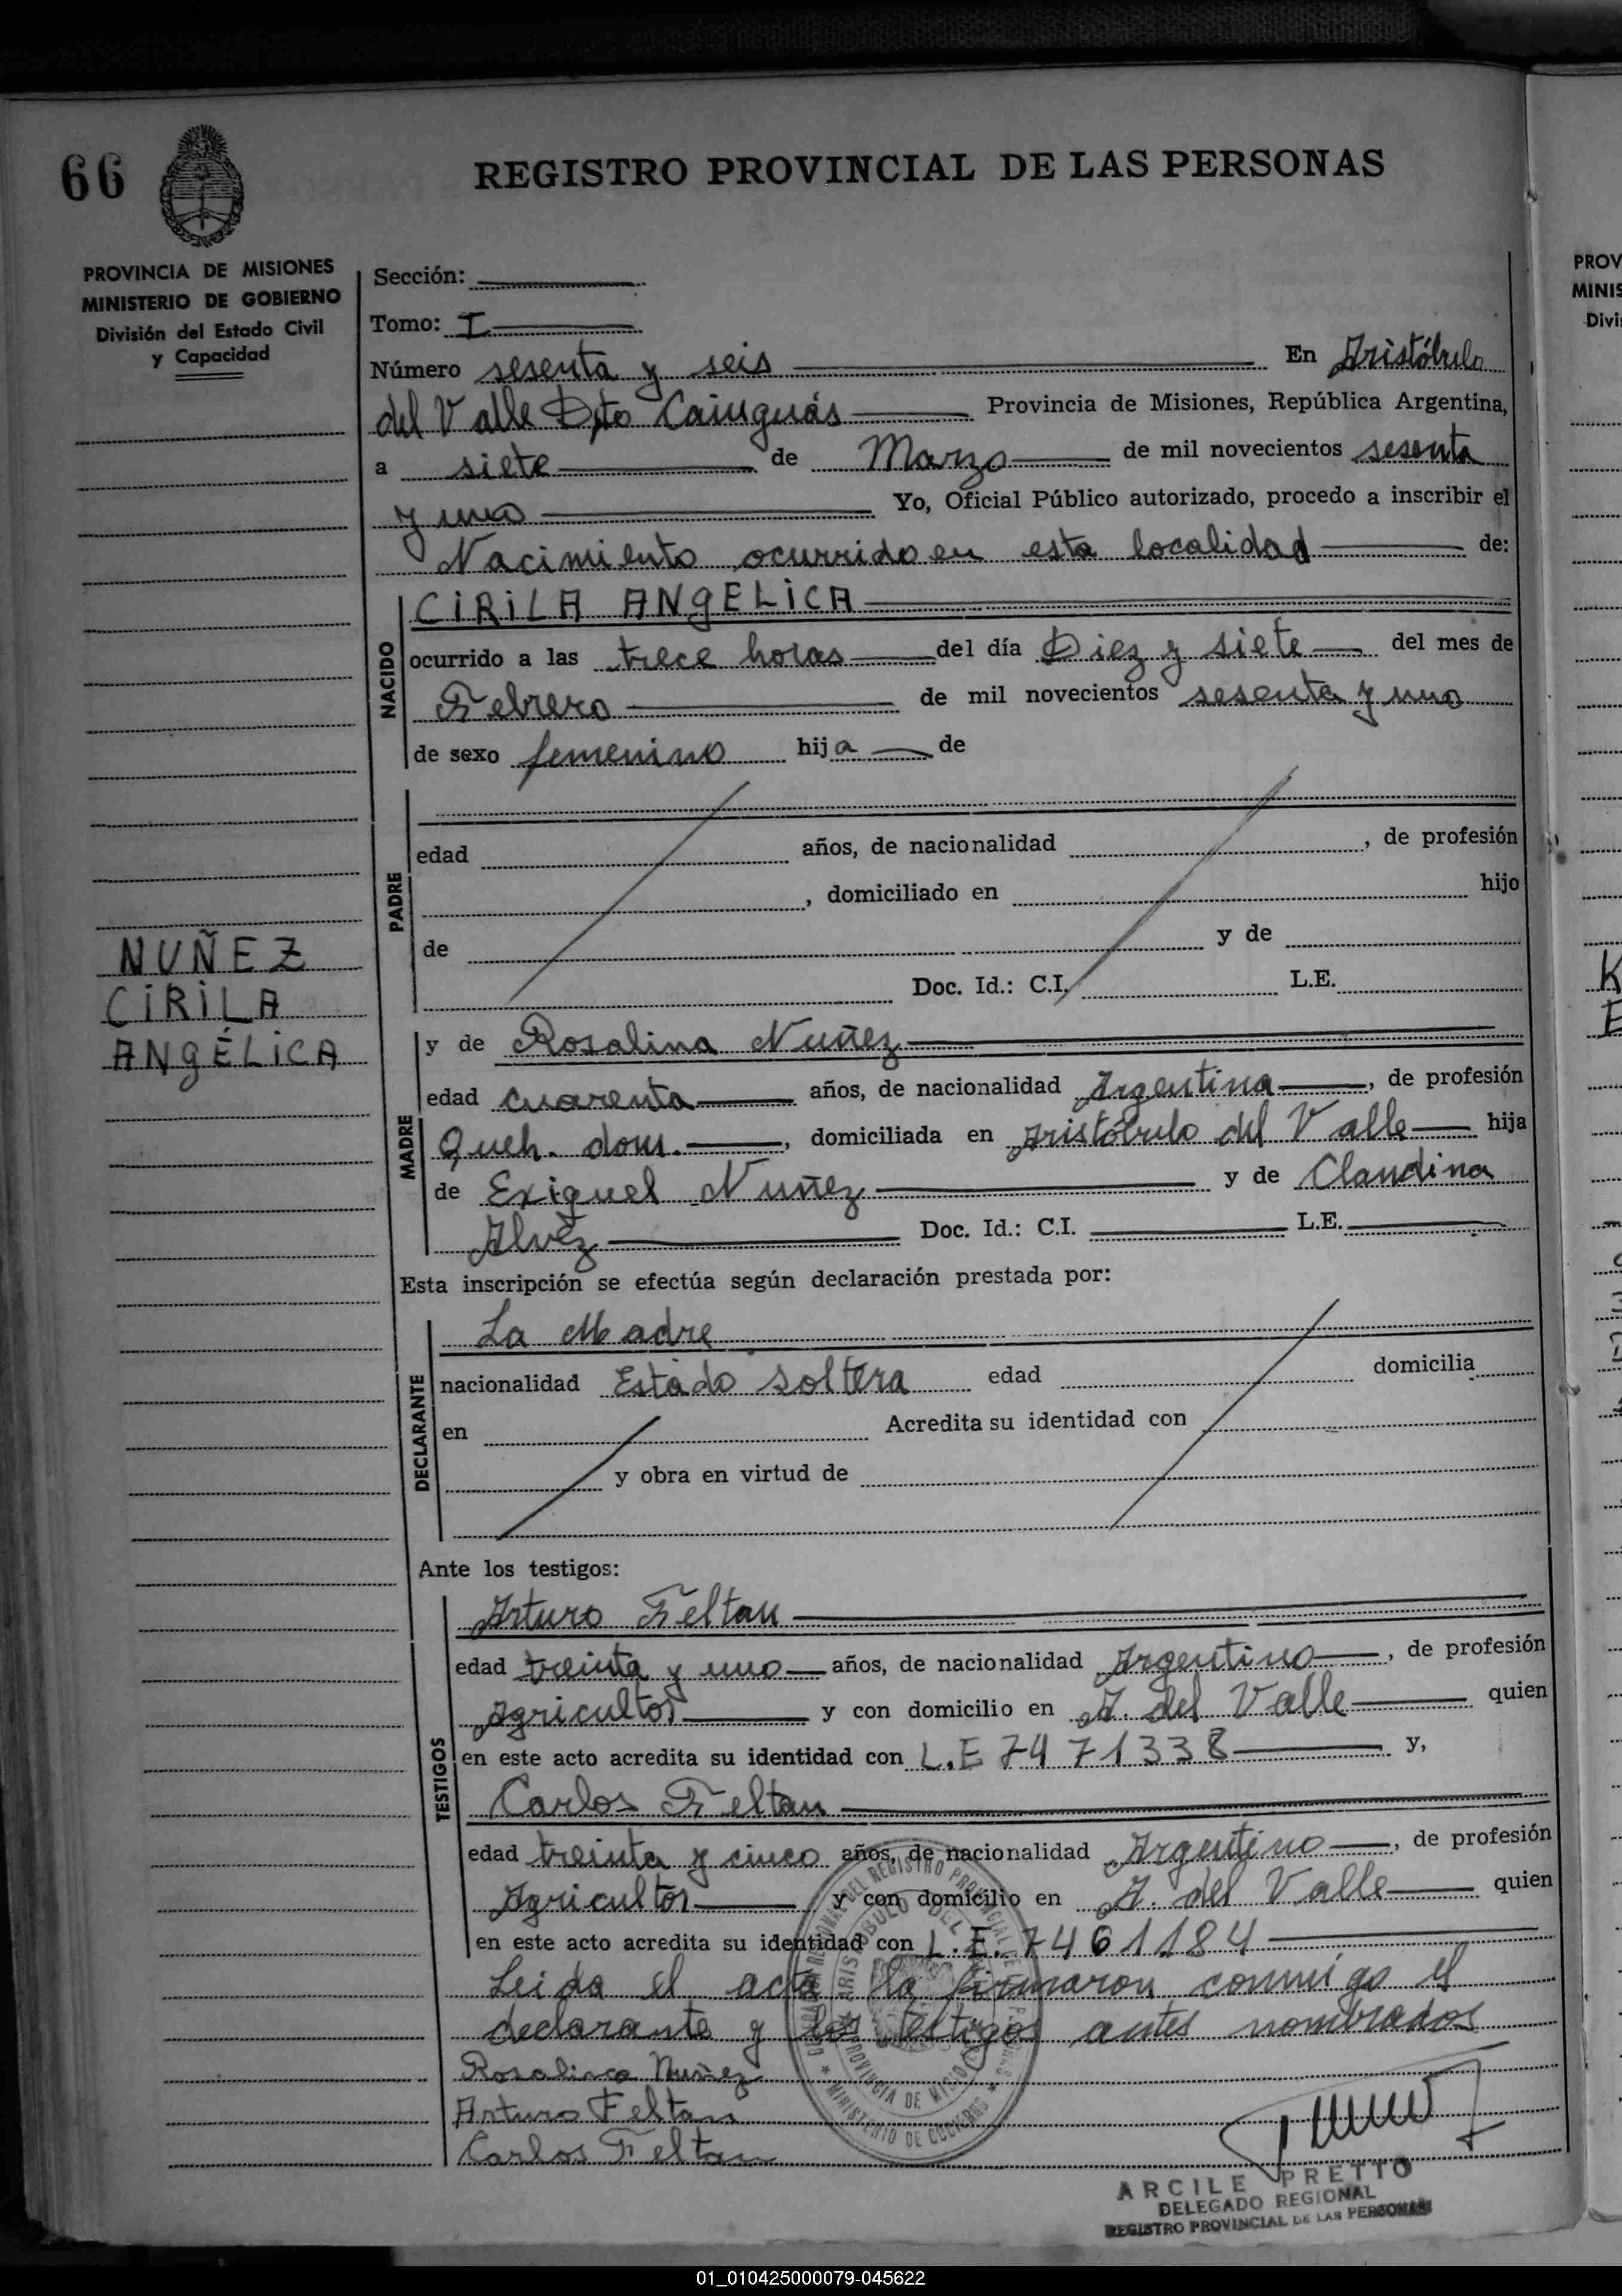 66
REGISTRO PROVINCIAL DE LAS PERSONAS
PROVINCIA DE MISIONES
MINISTERIO DE GOBIERNO
División del Estado Civil
y Capacidad
Sección:
Tomo: I
Número sesenta y seis En Aristóbulo
del Valle Dpto Cainguás Provincia de Misiones, República Argentina,
a siete de Marzo de mil novecientos sesenta
y uno Yo, Oficial Público autorizado, procedo a inscribir el
Nacimiento ocurrido en esta localidad de:
NACIDO
CIRILA ANGELICA
ocurrido a las trece horas del día Diez y siete del mes de
Febrero de mil novecientos sesenta y uno
de sexo femenino hija de
PADRE
edad años, de nacionalidad , de profesión
, domiciliado en hijo
de y de
Doc. Id.: C.I. L.E.
NUÑEZ
CIRILA
ANGÉLICA
MADRE
y de Rosalina Nuñez
edad cuarenta años, de nacionalidad Argentina, de profesión
Queh. dom., domiciliada en Aristóbulo del Valle hija
de Exiquel Nuñez y de Claudina
Alvez Doc. Id.: C.I. L.E.
Esta inscripción se efectúa según declaración prestada por:
DECLARANTE
La Madre
nacionalidad Estado soltera edad domicilia
en Acredita su identidad con
y obra en virtud de
Ante los testigos:
TESTIGOS
Arturo Feltan
edad treinta y uno años, de nacionalidad Argentino, de profesión
Agricultor y con domicilio en A. del Valle quien
en este acto acredita su identidad con L.E 7471338 y,
Carlos Feltan
edad treinta y cinco años, de nacionalidad Argentino, de profesión
Agricultor y con domicilio en A. del Valle quien
en este acto acredita su identidad con L.E. 7461184
Leida el acta la firmaron conmigo el
declarante y los testigos antes nombrados
Rosalina Nuñez
Arturo Feltan
Carlos Feltan
ARCILE PRETTO
DELEGADO REGIONAL
REGISTRO PROVINCIAL DE LAS PERSONAS
PROV
MINIS
Divi
K
E
01_010425000079-045622